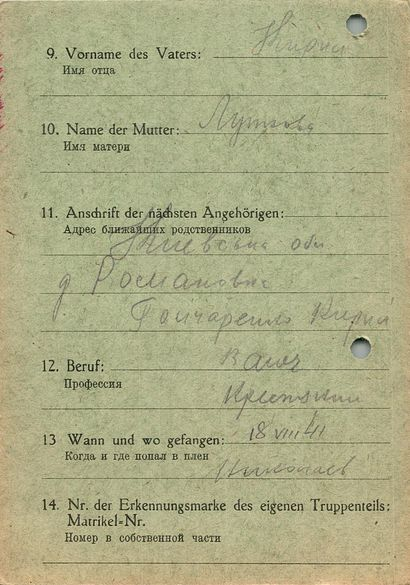 9. Vorname des Vaters: Кирил
Имя отца
10. Name der Mutter:
Имя матери
11. Anschrift der nächsten Angehörigen:
Адрес ближайших родственников
Киевська обл
д Романовка
Гончаренко Кирил
12. Beruf:
Профессия
13 Wann und wo gefangen: 18 VIII 41
Когда и где попал в плен
Николаев
14. Nr. der Erkennungsmarke des eigenen Truppenteils:
Matrikel-Nr.
Номер в собственной части